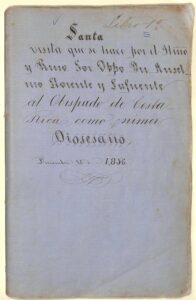 Libro 1º
Santa
visita que se hace por el Illmo
y Rmo Sor Obpo Dn Ansel
mo Llorente y Lafuente
al Obispado de Costa
Rica como primer
Diosesano,
1,856